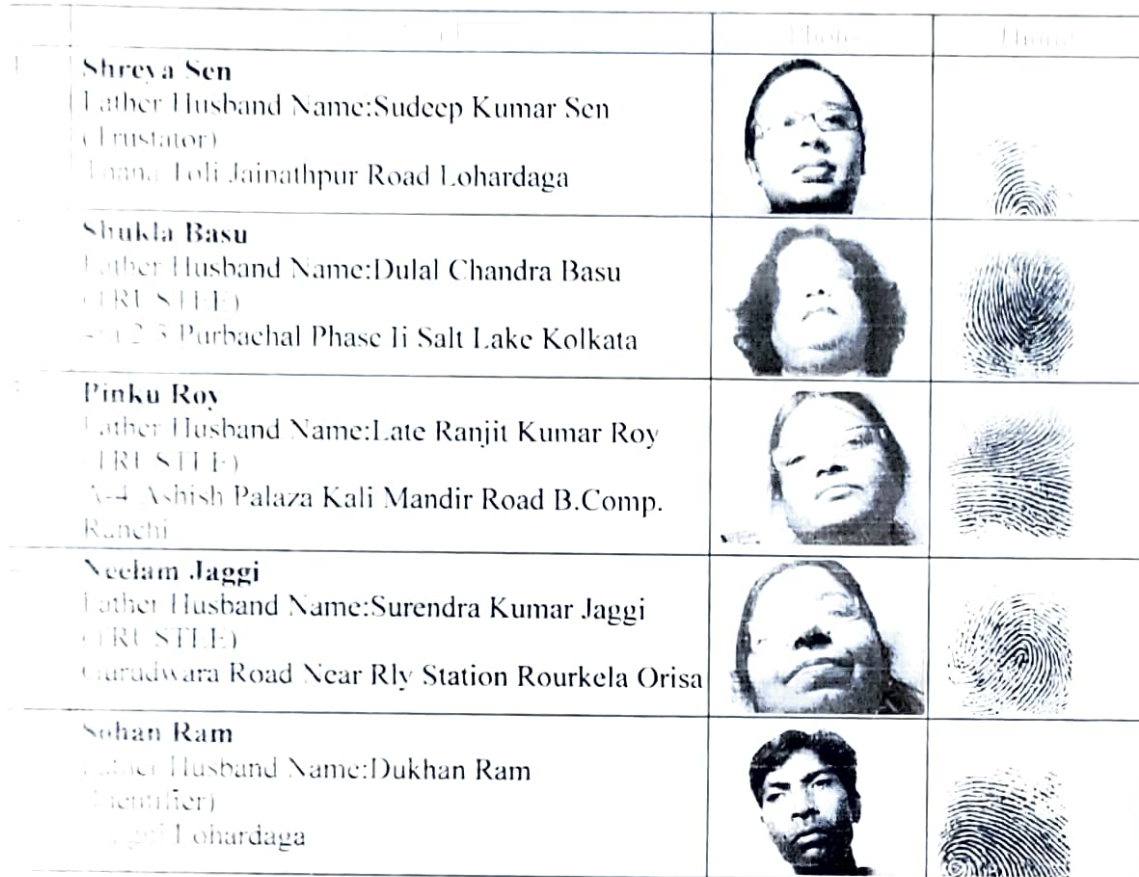 Photo
Shreya Sen
Father Husband Name:Sudeep Kumar Sen
(Trustator)
Toli Jainathpur Road Lohardaga
Shukla Basu
Father Husband Name:Dulal Chandra Basu
(TRUSTEE)
2 3 Purbachal Phase Ii Salt Lake Kolkata
Pinku Roy
Father Husband Name:Late Ranjit Kumar Roy
(TRUSTEE)
A-4 Ashish Palaza Kali Mandir Road B.Comp.
Ranchi
Neelam Jaggi
Father Husband Name:Surendra Kumar Jaggi
(TRUSTEE)
Gurudwara Road Near Rly Station Rourkela Orisa
Sohan Ram
Father Husband Name:Dukhan Ram
(Identifier)
Lohardaga